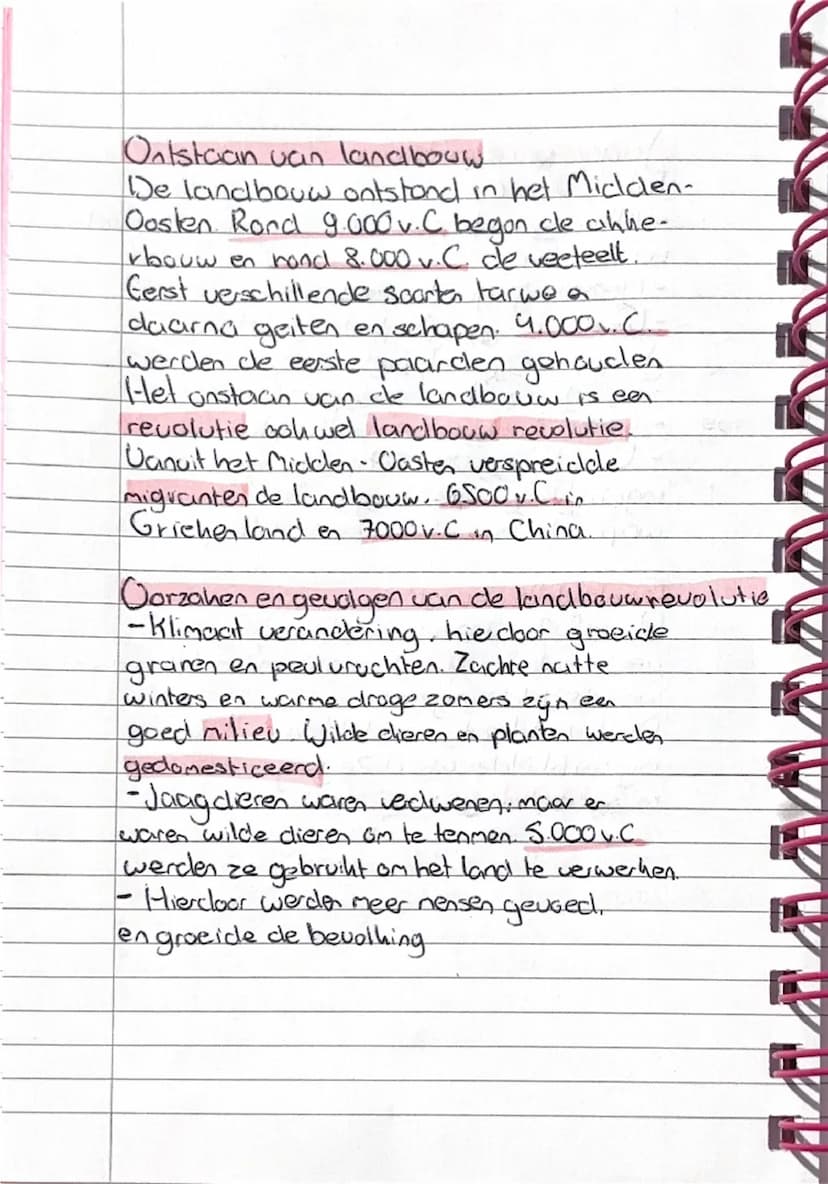 Ontstaan van landbouw
De landbouw ontstond in het Midden-
Oosten. Rond 9.000 v.C. begon de akke-
rbouw en rond 8.000 v.C. de veeteelt.
Eerst verschillende soorten tarwe en
daarna geiten en schapen. 4.000 v.C.
werden de eerste paarden gehouden
Het onstaan van de landbouw is een
revolutie ook wel landbouw revolutie.
Vanuit het Midden-Oosten verspreidde
migranten de landbouw. 6500 v.C. in
Griekenland en 7000 v.C in China.
Oorzaken en gevolgen van de landbouwrevolutie
-Klimaat verandering, hierdoor groeide
granen en peulvruchten. Zachte natte
winters en warme droge zomers zijn een
goed milieu. Wilde dieren en planten werden
gedomesticeerd.
-Jaagdieren waren verdwenen, maar er
waren wilde dieren om te temmen. 5.000 v.C
werden ze gebruikt om het land te verwerken.
- Hierdoor werden meer mensen gevoed,
en groeide de bevolking